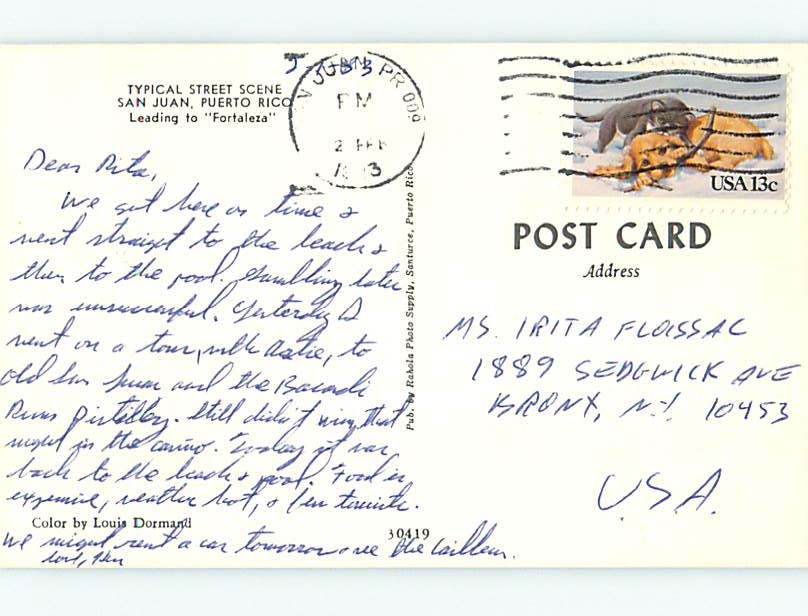 TYPICAL STREET SCENE
SAN JUAN, PUERTO RICO
Leading to "Fortaleza"
JUAN PR 009
PM
2 FEB
USA 13c
POST CARD
Address
Dear Rita,
We got here on time &
went straight to the beach &
then to the pool. Gambling later
was unsuccessful. Yesterday I
went on a tour, with to
Old San Juan and the Bacardi
Rum Distillery. Still didn't win that
night in the casino. Today it was
back to the beach & pool. Food is
expensive, weather hot, & few tourists.
We might rent a car tomorrow & see the
MS. IRITA FLOISSAC
1889 SEDGWICK AVE
BRONX, N.Y. 10453
U.S.A.
Color by Louis Dormand
30419
Pub. by Rahola Photo Supply, Santurce, Puerto Rico